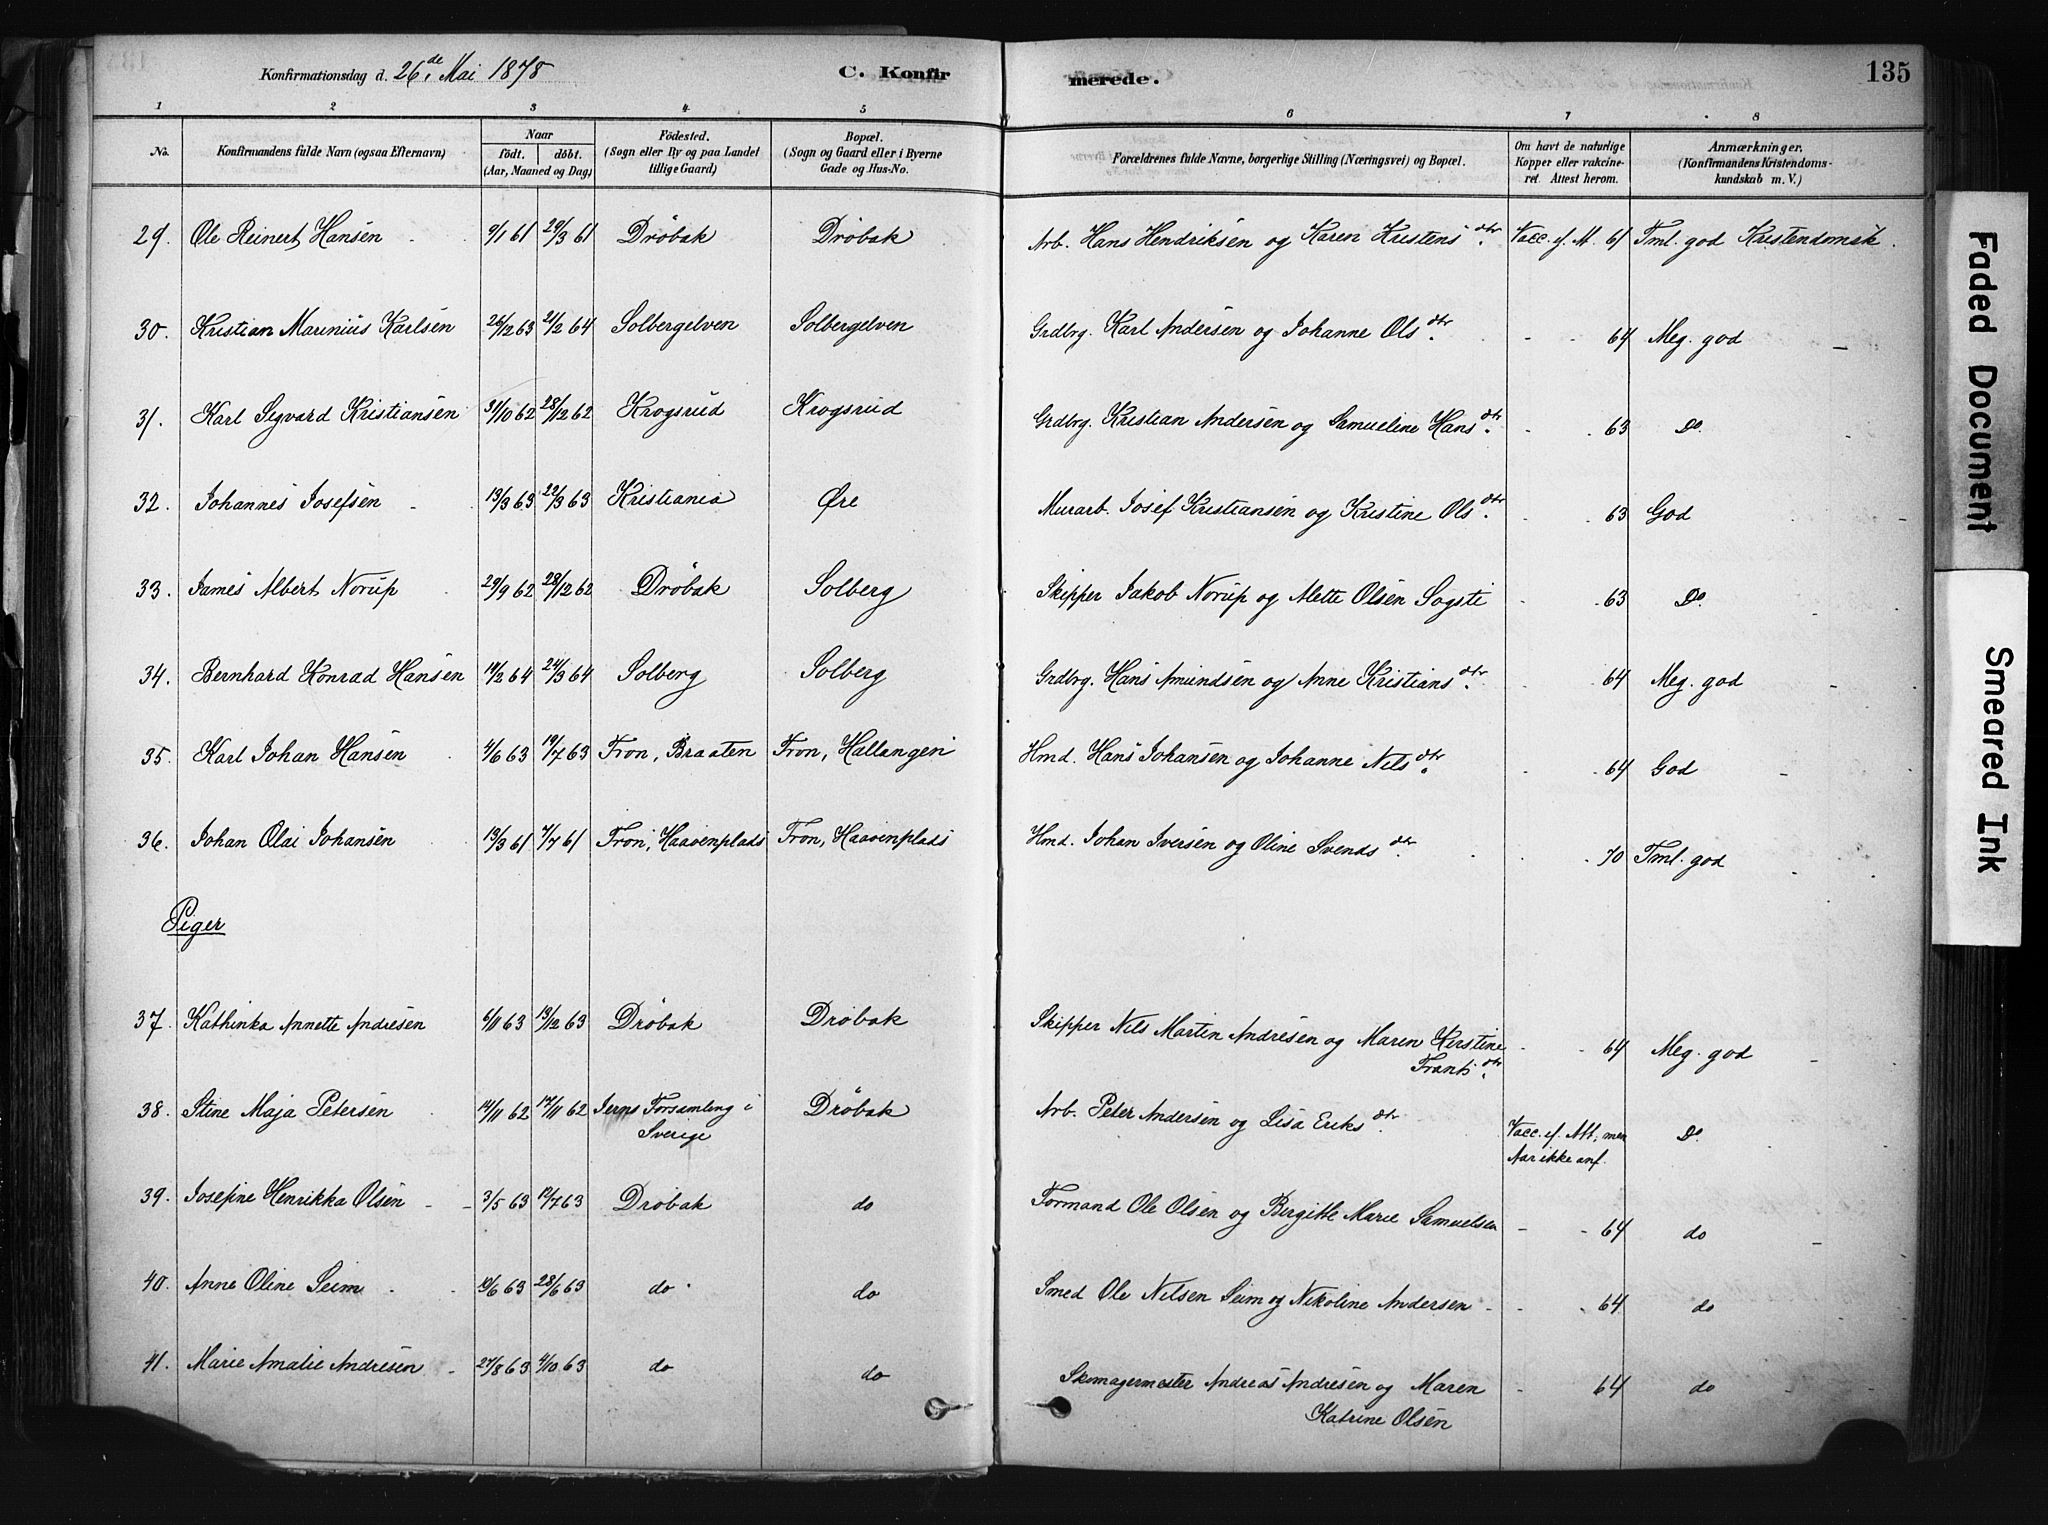 Konfirmationsdag d. 26de Mai 1878 C. Konfirmerede. 135
1 2 3 4 5 6 7 8
No. Konfirmandens fulde Navn (ogsaa Efternavn) Naar födt. döbt. (Aar, Maaned og Dag) Födested. (Sogn eller By og paa Landet tillige Gaard) Bopæl. (Sogn og Gaard eller i Byerne Gade og Hus-No. Forældrenes fulde Navne, borgerlige Stilling (Næringsvei) og Bopæl. Om havt de naturlige Kopper eller vakcineret. Attest herom. Anmærkninger. (Konfirmandens Kristendomskundskab m. V.)
29. Ole Reinert Hansen 9/1 61 29/3 61 Dröbak Dröbak Arb. Hans Hendriksen og Karen Kristensdtr. Vacc. ef. A. 61 Tml. god Kristendomsk.
30. Kristian Marinius Karlsen 26/12 63 21/2 64 Solbergelven Solbergelven Grdbrg. Karl Andersen og Johanne Olsdtr. - - 64 Meg. god
31. Karl Sigvard Kristiansen 31/10 62 28/12 62 Krogsrud Krogsrud Grdbrg. Kristian Andersen og Samueline Hansdtr. - - 63 Do.
32. Johannes Josefsen 13/3 63 22/3 63 Kristiania Øre Murarb. Josef Kristiansen og Kristine Olsdtr. - - 63 God
33. James Albert Norup 29/9 62 28/12 62 Dröbak Solberg Skipper Jakob Norup og Alette Olsen Sogsti - - 63 Do.
34. Bernhard Konrad Hansen 19/2 64 24/3 64 Solberg Solberg Grdbrg. Hans Amundsen og Anne Kristiansdtr. - - 64 Meg. god
35. Karl Johan Hansen 4/6 63 19/7 63 Fron, Braaten Fron, Hallangen Hmd. Hans Johansen og Johanne Nilsdtr. - - 64 God
36. Johan Olai Johansen 13/3 61 7/7 61 Fron, Haavenplads Fron, Haavenplads Hmd. Johan Iversen og Oline Svendsdtr. - - 70 Tml. god
Piger
37. Kathinka Annette Andresen 6/11 63 13/12 63 Dröbak Dröbak Skipper Nils Martin Andresen og Maren Kerstine Frantsdtr. - - 64 Meg. god
38. Stine Maja Petersen 14/11 62 17/11 62 Forsamling i Sverige Dröbak Arb. Peter Andersen og Lisa Eriksdtr. Vacc. ef. Att., men Aar ikke anf. Do.
39. Josefine Henrikka Olsen 3/5 63 19/7 63 Dröbak do Formand Ole Olsen og Birgitte Marie Samuelsen - - 64 do
40. Anne Oline Seim 10/6 63 28/6 63 do do Smed Ole Nilsen Seim og Nikoline Andersen - - 64 do
41. Marie Amalie Andresen 27/8 63 4/10 63 do do Skomagermester Andreas Andresen og Maren Katrine Olsen - 64 do
Faded Document
Smeared Ink